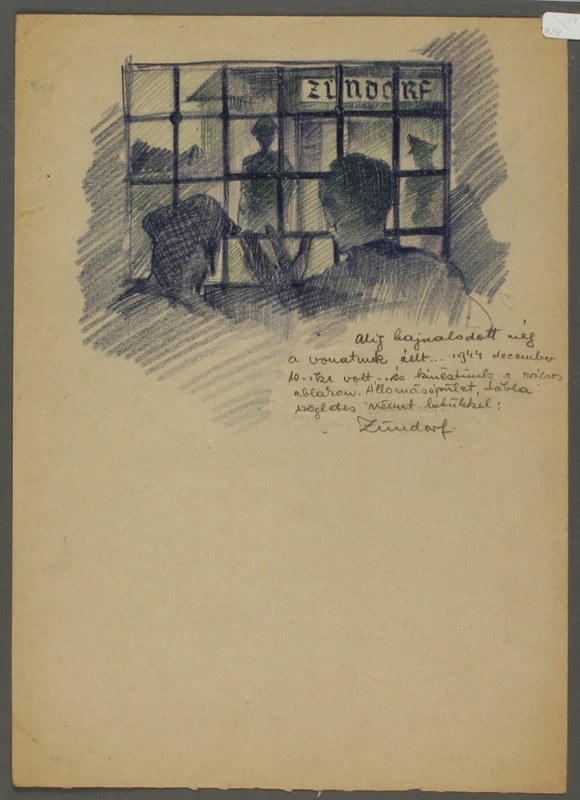 ZÜNDORF
Alig hajnalodott még
a vonatunk állt... 1944 december
10-ike volt... és kinéztünk a rácsos
ablakon. Állomásépület, tábla
szögletes német betükkel:
Zündorf.